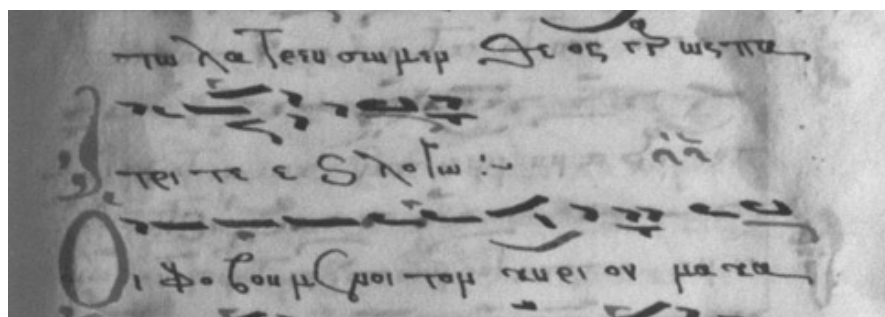 τω λατρευσωμεν Θεος γαρ ως πα
τρι τε ε ϗ λογω :~
Οι φοβουμενοι τον κυριον μακα